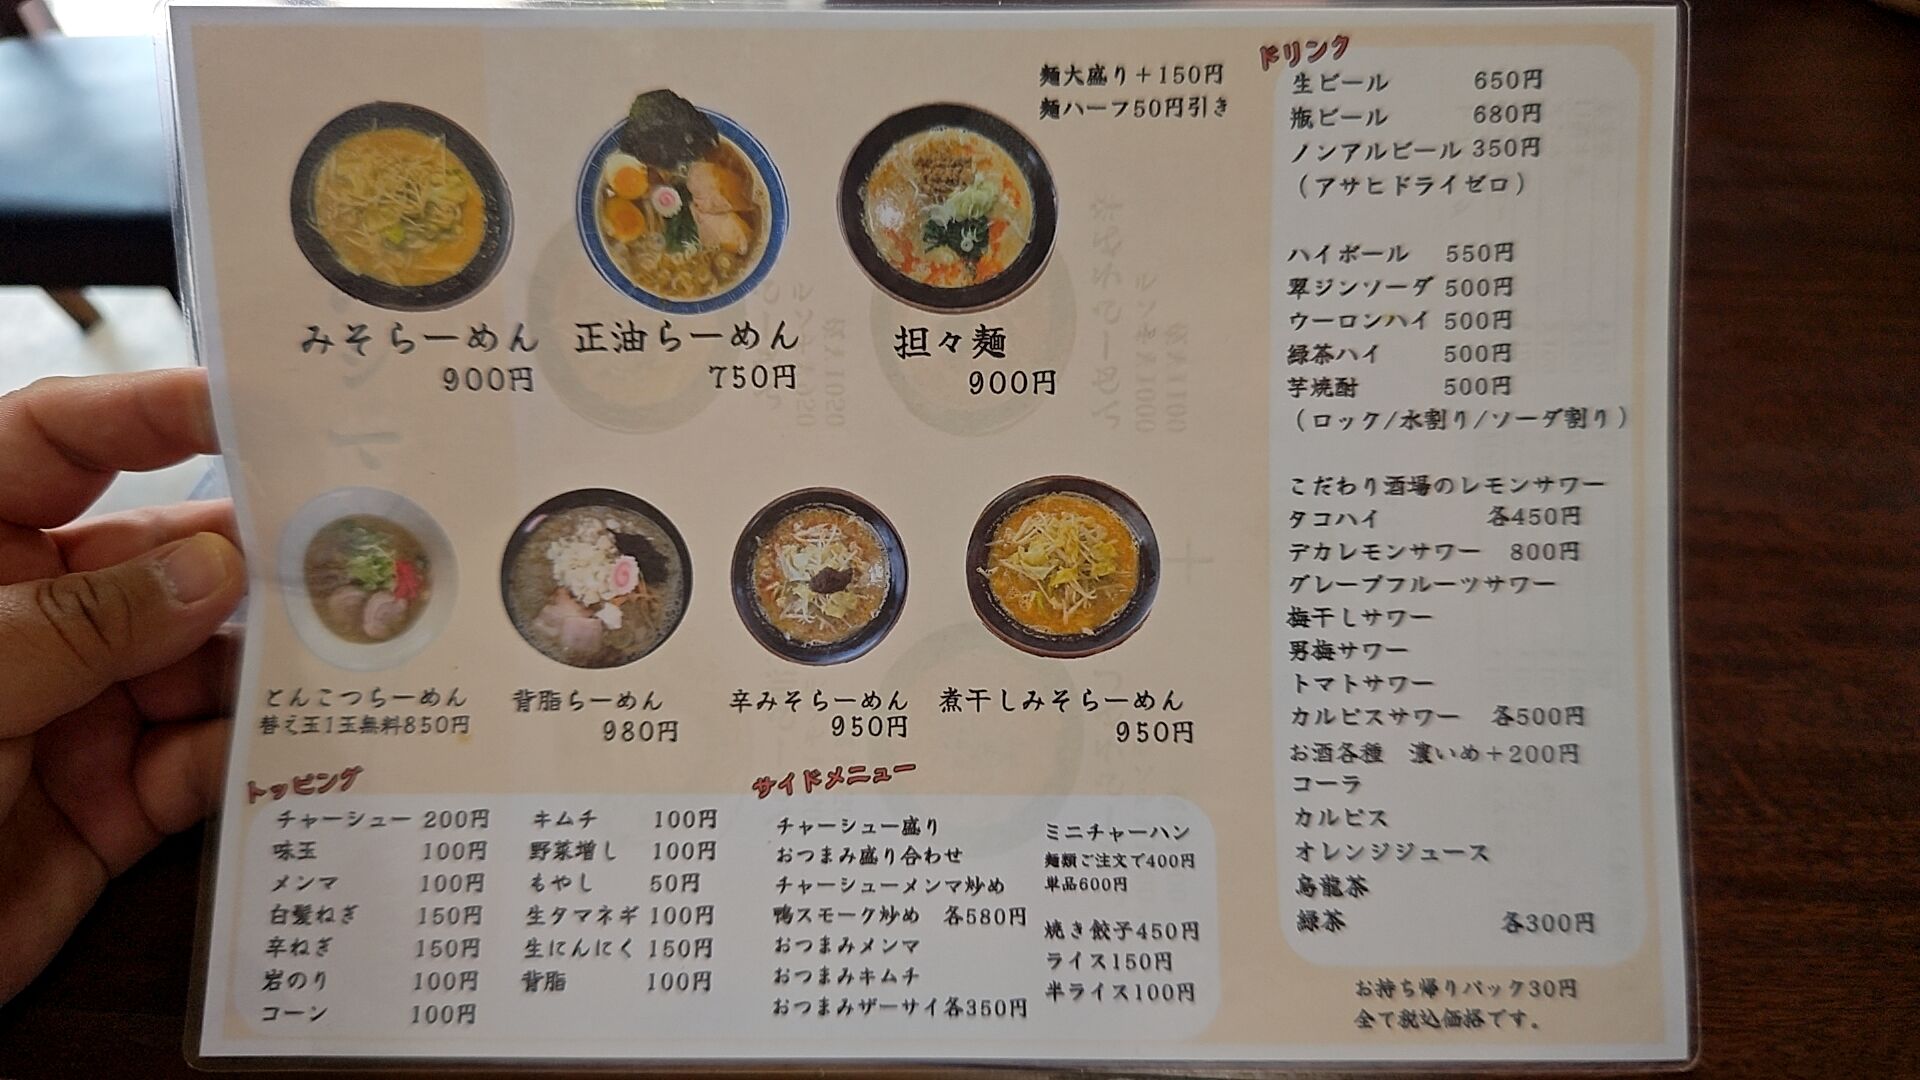 麺大盛り＋150円
麺ハーフ50円引き
みそらーめん
900円
正油らーめん
750円
担々麺
900円
とんこつらーめん
替え玉1玉無料850円
背脂らーめん
980円
辛みそらーめん
950円
煮干しみそらーめん
950円
トッピング
チャーシュー 200円
味玉 100円
メンマ 100円
白髪ねぎ 150円
辛ねぎ 150円
岩のり 100円
コーン 100円
キムチ 100円
野菜増し 100円
もやし 50円
生タマネギ 100円
生にんにく 150円
背脂 100円
サイドメニュー
チャーシュー盛り
おつまみ盛り合わせ
チャーシューメンマ炒め
鴨スモーク炒め 各580円
おつまみメンマ
おつまみキムチ
おつまみザーサイ各350円
ミニチャーハン
麺類ご注文で400円
単品600円
焼き餃子450円
ライス150円
半ライス100円
ドリンク
生ビール 650円
瓶ビール 680円
ノンアルビール 350円
（アサヒドライゼロ）
ハイボール 550円
翠ジンソーダ 500円
ウーロンハイ 500円
緑茶ハイ 500円
芋焼酎 500円
（ロック/水割り/ソーダ割り）
こだわり酒場のレモンサワー
タコハイ 各450円
デカレモンサワー 800円
グレープフルーツサワー
梅干しサワー
男梅サワー
トマトサワー
カルピスサワー 各500円
お酒各種 濃いめ＋200円
コーラ
カルピス
オレンジジュース
烏龍茶
緑茶 各300円
お持ち帰りパック30円
全て税込価格です。